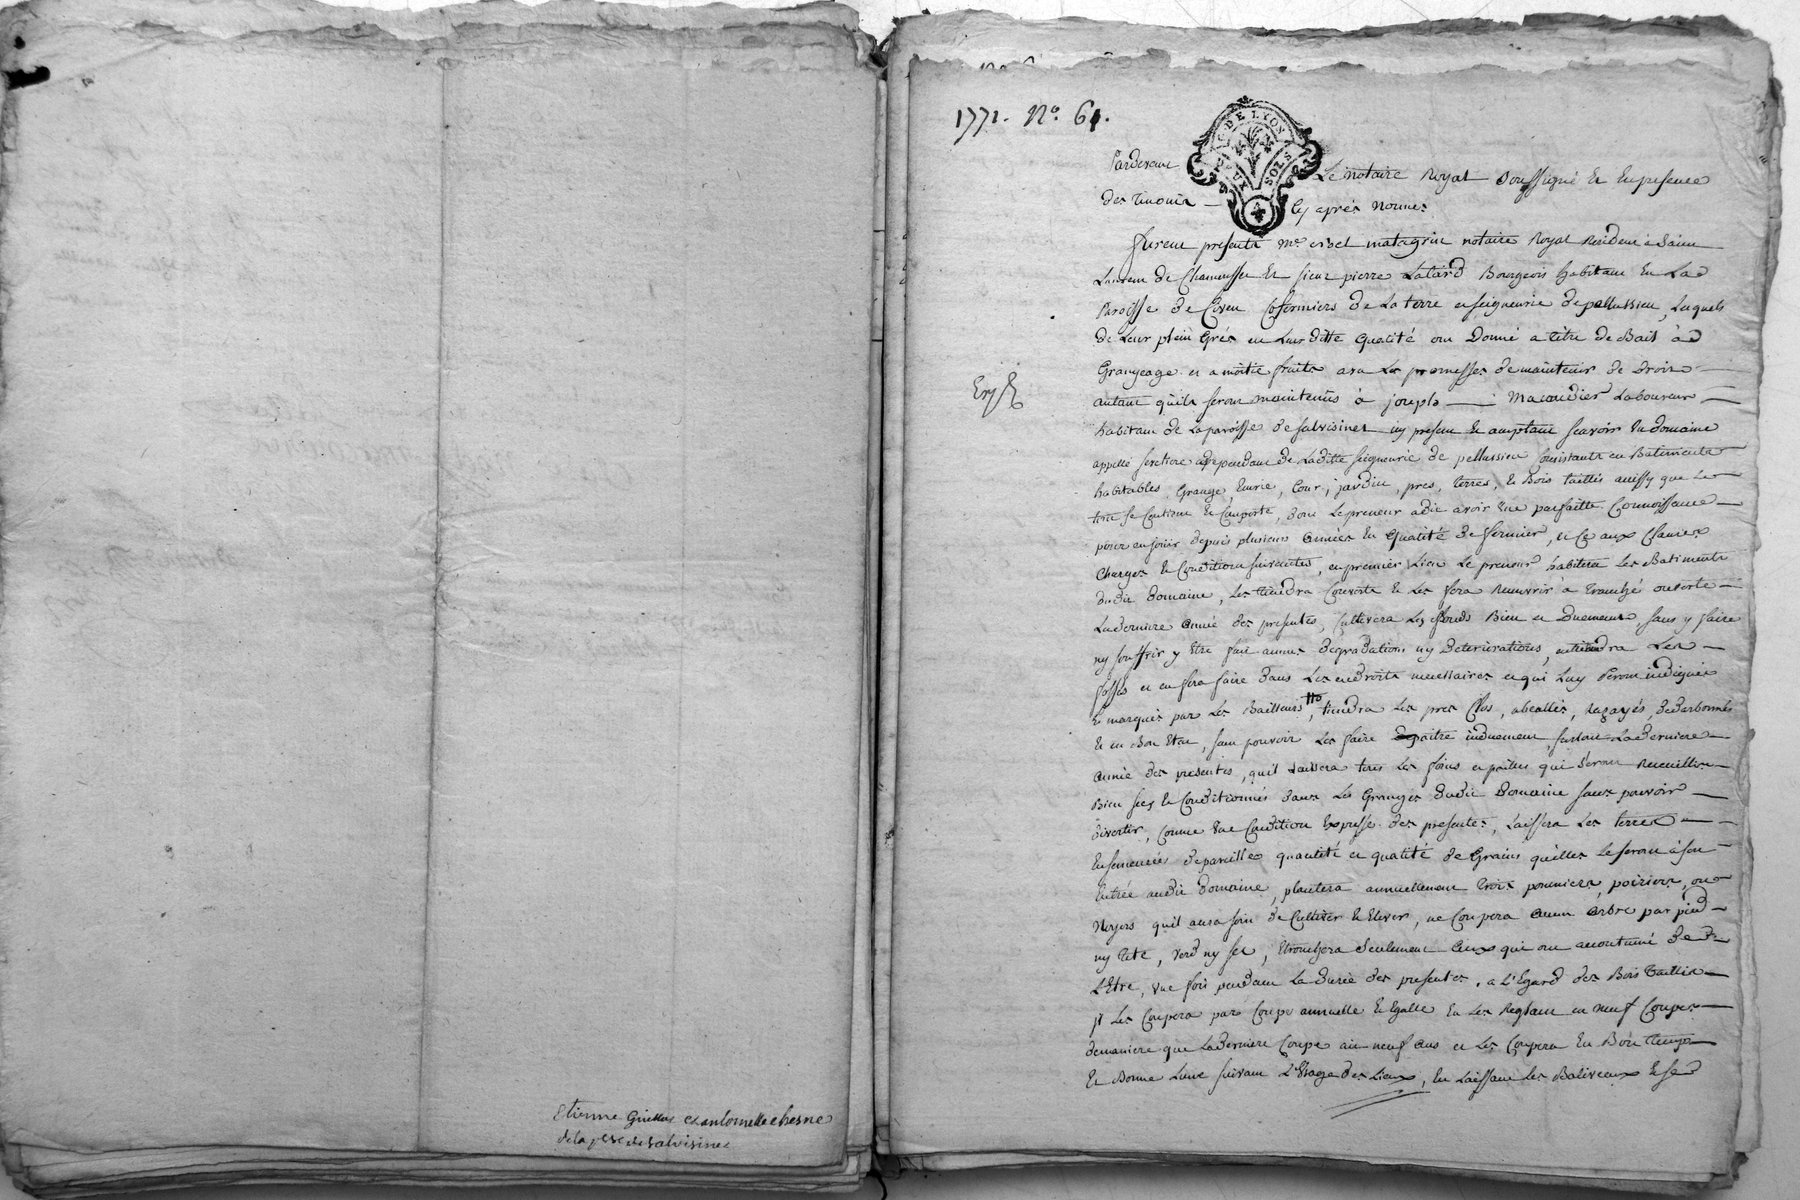 Etienne Grellet et antoinette chesne
de la psse de salvisinet
1771. N.o 61.
G. DE LYON
DEUX SOLS
Pardevant Le notaire Royal Soussigné Et En presence
des temoins cy aprés nommes
furent presents Me. matagrin notaire Royal Resident a Saint
Laurent de Chamousset Et sieur pierre Latard Bourgeois habitant En La
Paroisse de Civen Cofermiers de La terre et seigneurie de pellussieu, Lesquels
de Leur plein Gré et en Leur ditte qualité ont Donné a titre de Bail à
Grangeage et a moitié fruits avec Les promesses de maintenir de droit
autant qu'ils seront maintenus à joseph Macaudier Laboureur
habitant de La paroisse de salvisinet icy present Et acceptant scavoir Un domaine
appellé dependant de Laditte seigneurie de pellussieu Consistant en Batiments
habitables, Grange, Ecurie, Cour, jardin, pres, terres, Et Bois taillis ainssy que Le
tout se Contient Et Comporte, dont Le preneur a dit avoir Une parfaitte Connoissance
pour en jouir depuis plusieurs années En qualité de fermier, et Ce aux Clauses
Charges Et Conditions suivantes, en premier Lieu Le preneur habitera Les Batiments
dudit domaine, Les tiendra Couverts Et Les fera Recouvrir à tranché ouverte
La derniere année des presentes, Cultivera Les fonds Bien et Duement, sans y faire
ny souffrir y Etre fait aucunes degradations ny Deteriorations, entretiendra Les
fossés et en fera faire dans Les endroits necessaires et qui Luy seront indiqués
Et marqués par Les Bailleurs, tiendra Les pres Clos, Razayés, dedarbonnés
Et en Bon Etat, sans pouvoir Les faire paitre induement, surtout La derniere
année des presentes, qu'il Laissera tous Les foins et pailles qui seront Recueillis
Bien secs Et Conditionnés dans Les Granges dudit Domaine sans pouvoir
divertir, comme Une Condition Expresse des presentes, Laissera Les terres
Ensemencées de pareille quantité et qualité de Grains qu'elles Le seront à son
Entrée audit domaine, plantera annuellement trois pommiers, poiriers, ou
Noyers qu'il aura soin de Cultiver Et Elever, ne Coupera aucun arbre par pied
ny tete, verd ny sec, Etronchera seulement Ceux qui ont accoutumé de
L'Etre, Une fois pendant La durée des presentes, a L'Egard des Bois taillis
Les Coupera par Coupe annuelle Et Egalle En Les Reglant en neuf Coupes
de maniere que La derniere Coupe ait neuf ans et Les Coupera En Bon temps
Et Bonne Lune suivant L'Usage des Lieux, En Laissant Les Baliveaux Et Se